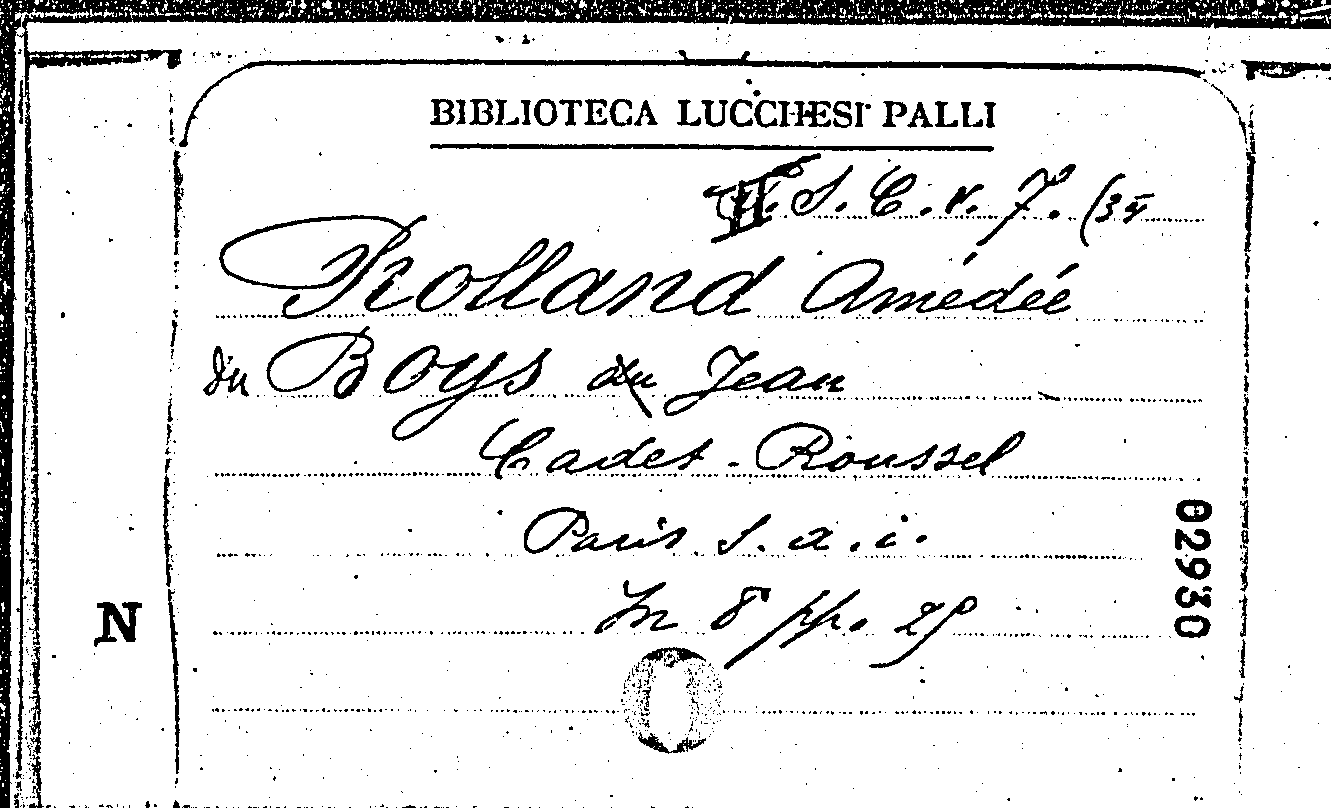 BIBLIOTECA LUCCHESI PALLI
S. C. v. 7. (35
Rolland Amédée
du Boys du Jean
Cadet-Roussel
Paris s. a. i.
In 8 pp. 29
02930
N